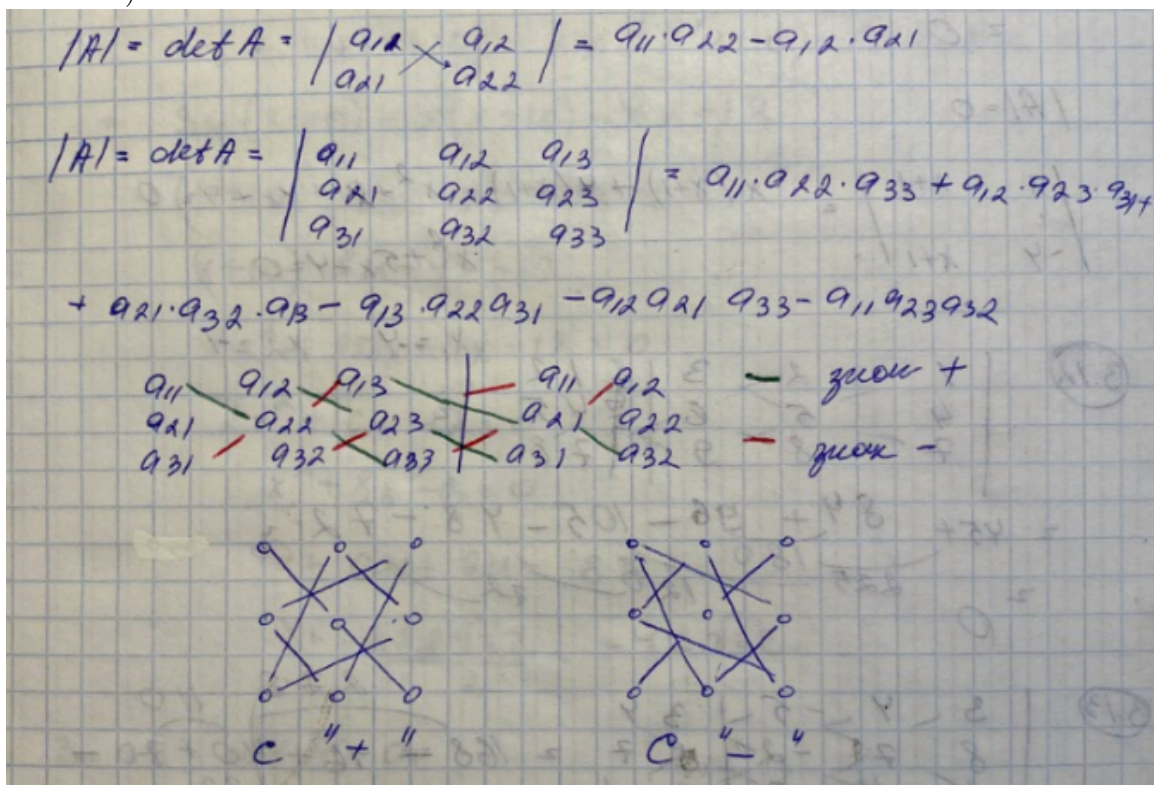 |A| = det A = | a12 a12 | = a11·a22 - a12·a21
| a21 a22 |
|A| = det A = | a11 a12 a13 | = a11·a22·a33 + a12·a23·a31+
| a21 a22 a23 |
| a31 a32 a33 |
+ a21·a32·a13 - a13·a22a31 - a12a21 a33 - a11a23a32
a11 a12 a13 | a11 a12 — знак +
a21 a22 a23 | a21 a22
a31 a32 a33 | a31 a32 — знак -
с "+" С "-"